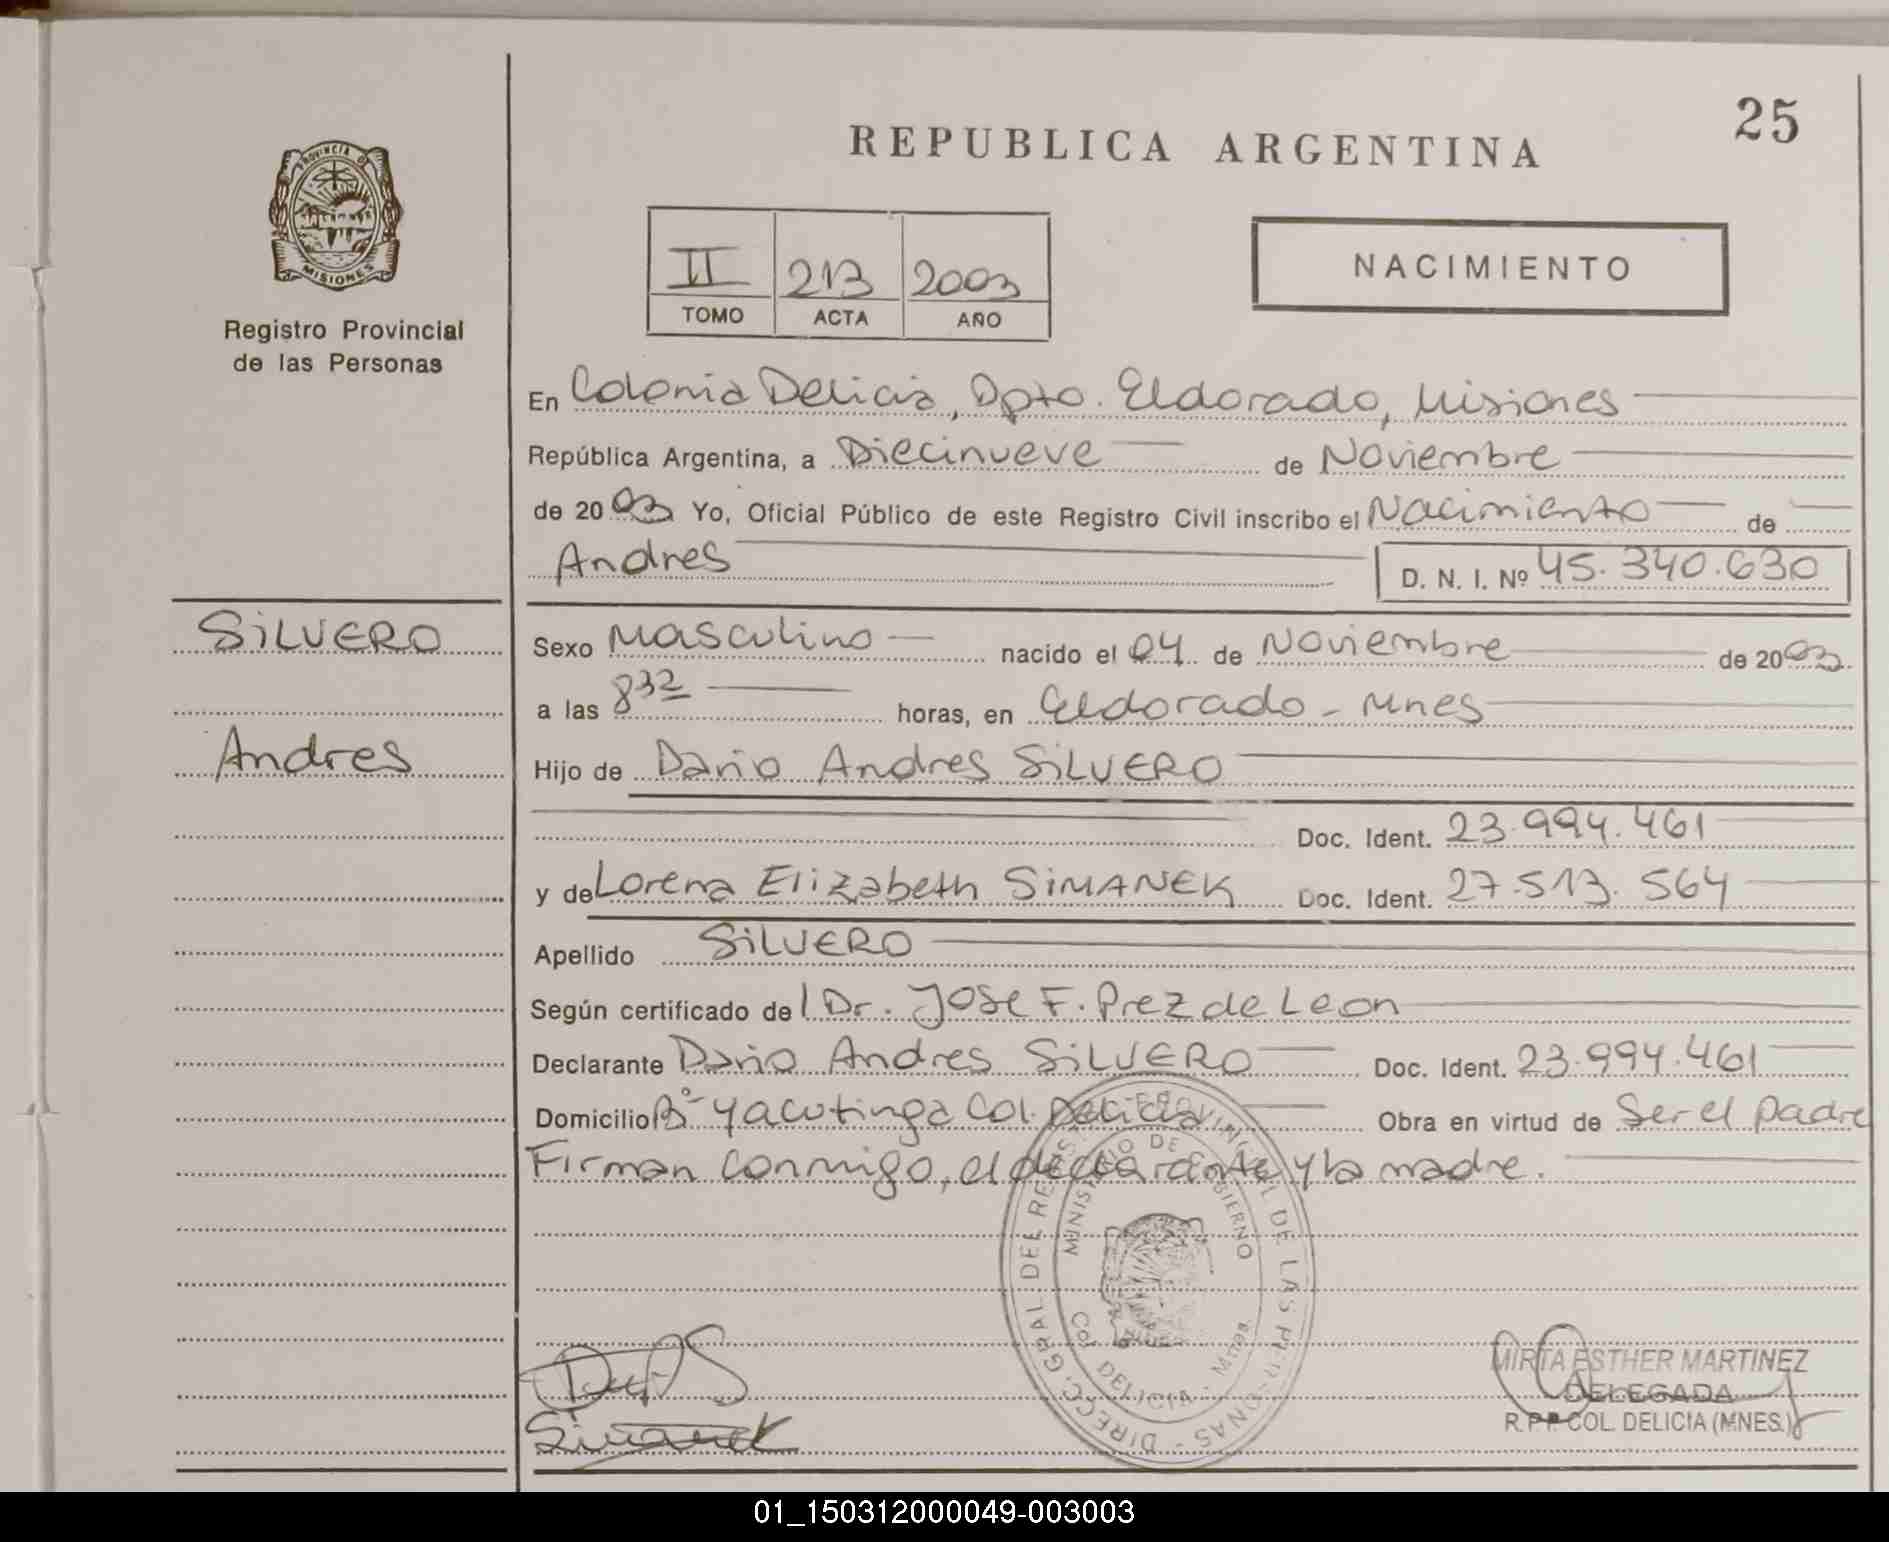 25
REPUBLICA ARGENTINA
PROVINCIA DE
MISIONES
Registro Provincial
de las Personas
II 213 2003
TOMO ACTA AÑO
NACIMIENTO
En Colonia Delicia, Dpto. Eldorado, Misiones
República Argentina, a Diecinueve de Noviembre
de 2003 Yo, Oficial Público de este Registro Civil inscribo el Nacimiento de
Andres D. N. I. Nº 45.340.630
SILVERO
Andres
Sexo Masculino nacido el 04 de Noviembre de 2003
a las 8 32 horas, en Eldorado - Mnes
Hijo de Dario Andres SILVERO
Doc. Ident. 23.994.461
y de Lorena Elizabeth SIMANEK Doc. Ident. 27.513.564
Apellido SILVERO
Según certificado del Dr. Jose F. Prez de Leon
Declarante Dario Andres SILVERO Doc. Ident. 23.994.461
Domicilio Bº Yacutinga Col. Delicia Obra en virtud de Ser el padre
Firman conmigo, el declarante y la madre.
DIRECC. GRAL DEL REGIST. PROVINCIAL DE LAS PERSONAS
MINISTERIO DE GOBIERNO
Col. DELICIA - Mnes.
Simanek
MIRTA ESTHER MARTINEZ
DELEGADA
R.P.P. COL. DELICIA (MNES.)
01_150312000049-003003